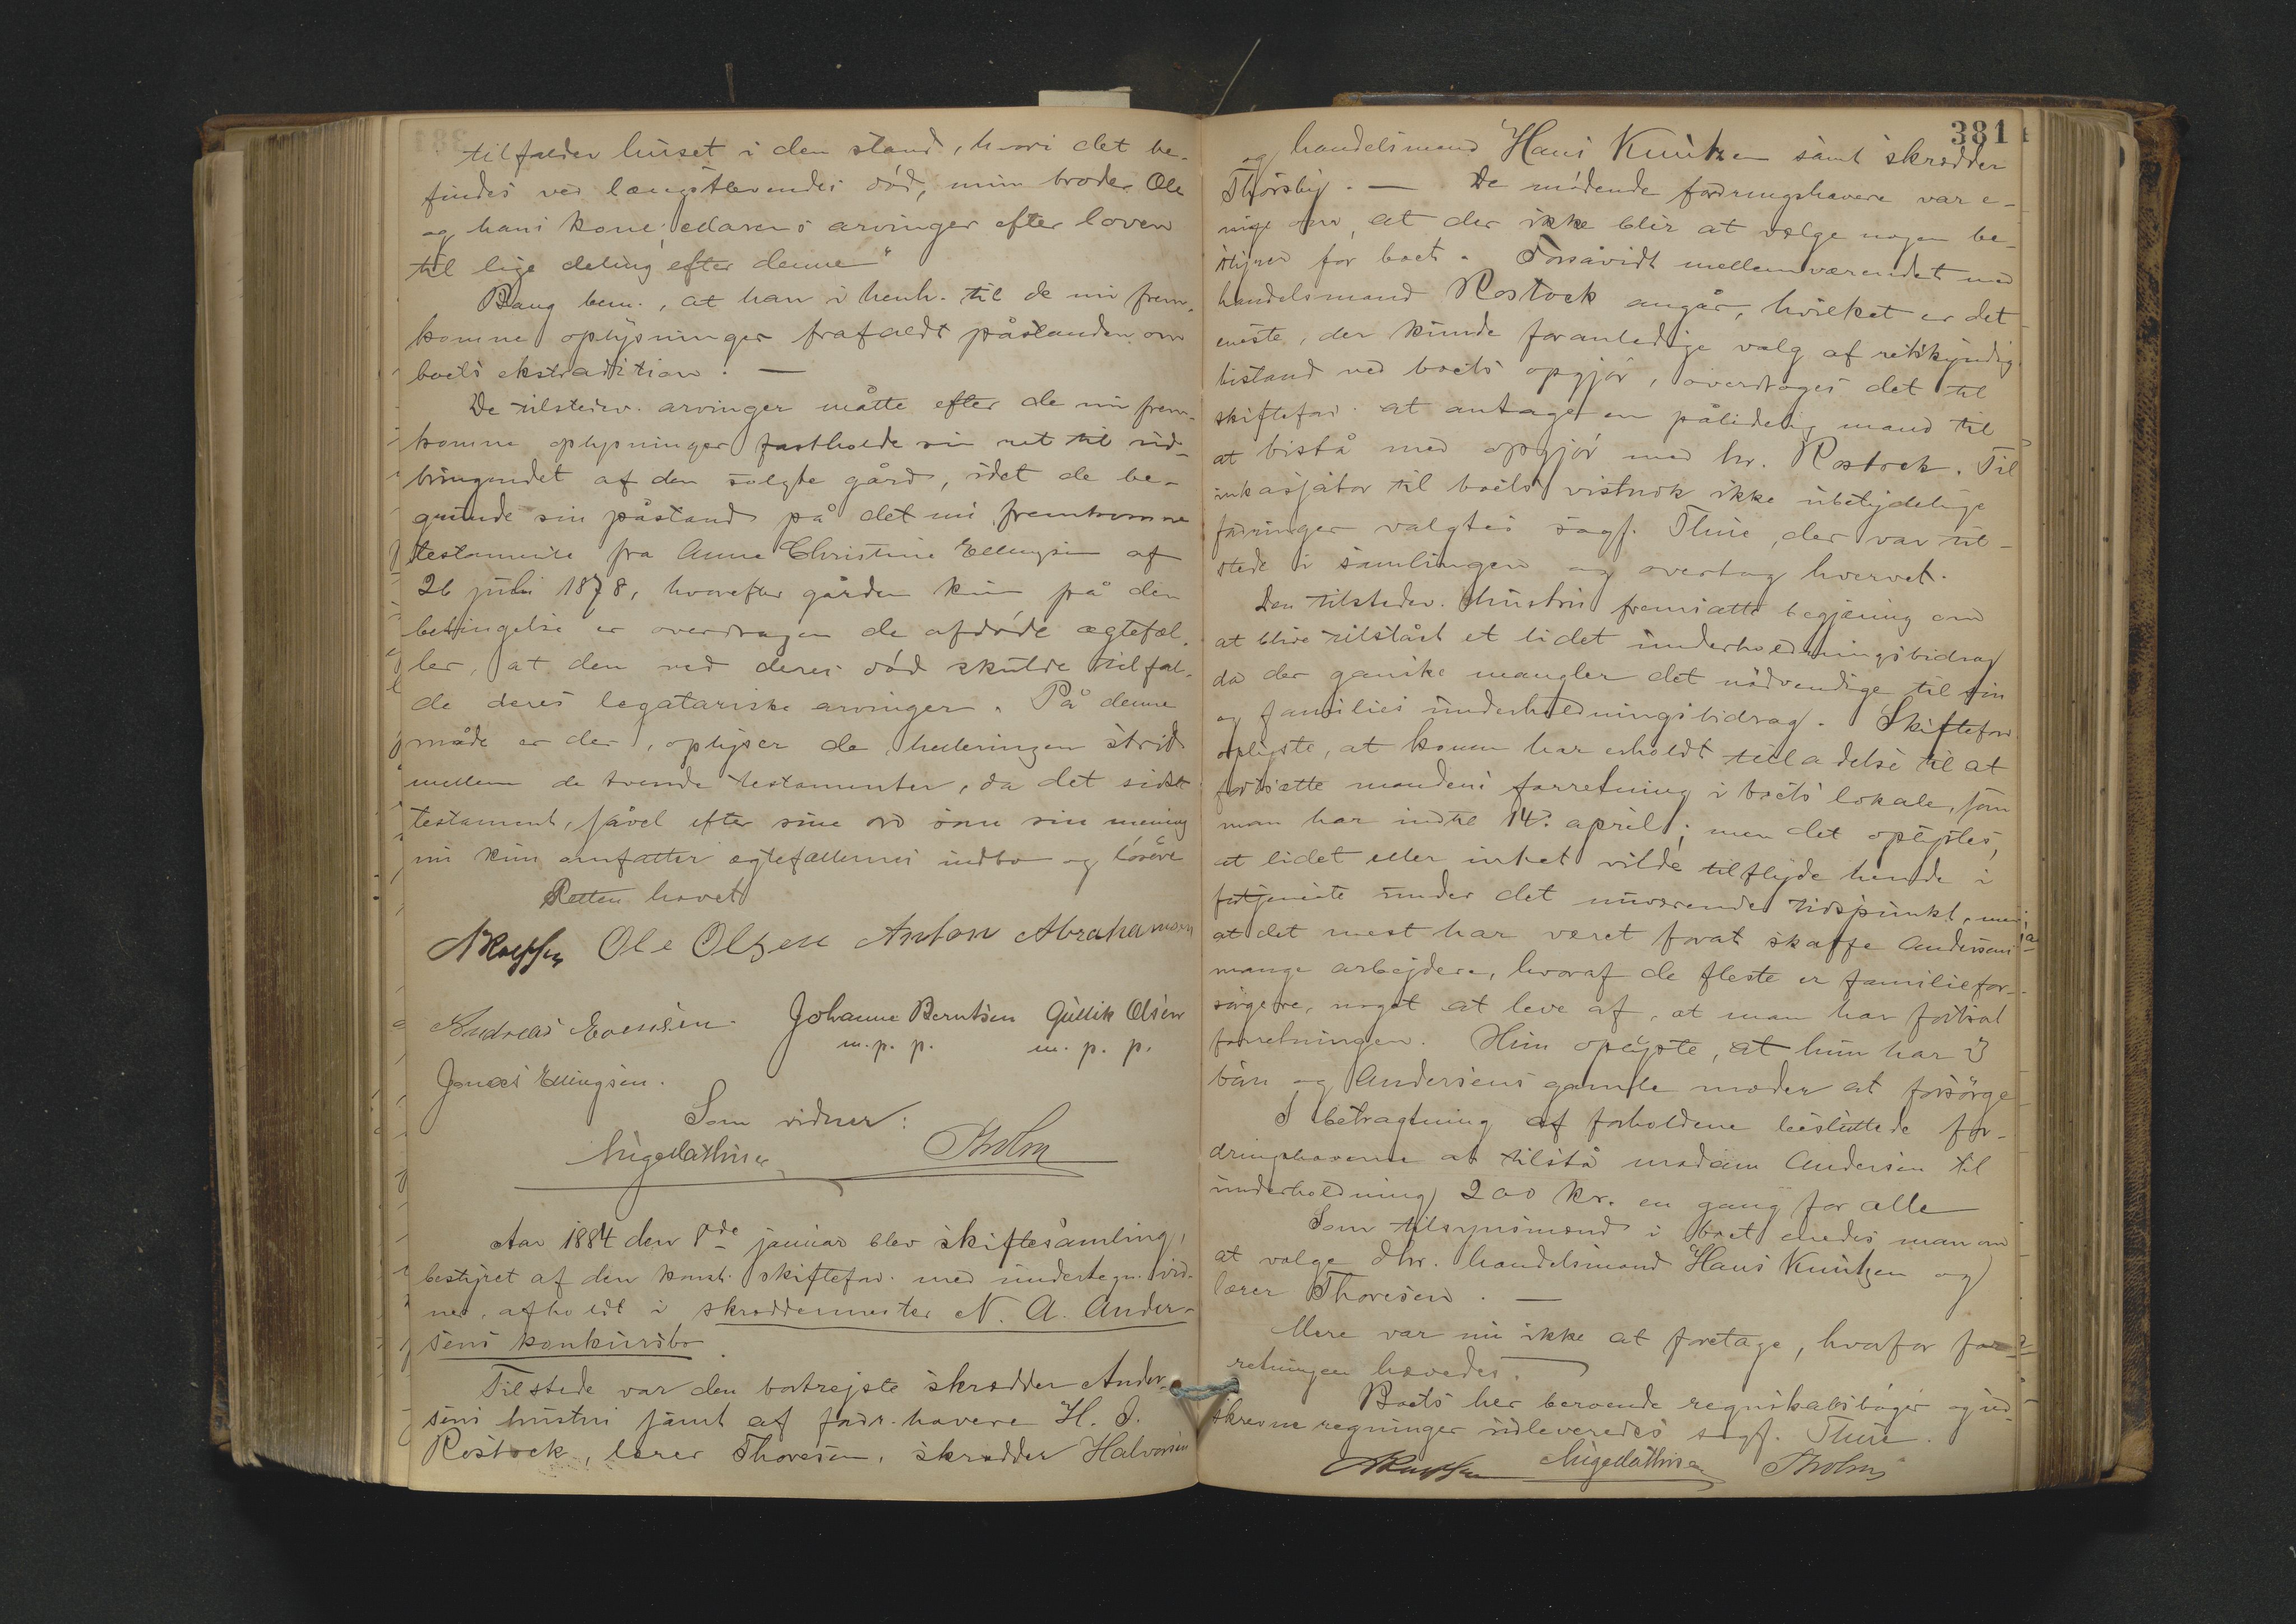 tilfalder huset i den stand, hvori det be-
findes ved længstlevendes død, min broder Ole
og hans kone, ellers arvinger efter loven
til lige deling efter denne"
Bang bem., at han i henh. til de nu frem-
komne oplysninger frafaldt påstanden om
boets ekstradition. —
De tilstedev. arvinger måtte efter de nu frem-
komne oplysninger fastholde sin ret til ud-
bringendet af den solgte gård, idet de be-
grunde sin påstand på det nu fremkomne
testamente fra Anne Christine Ellingsen af
26 juli 1878, hvorefter gården kun på den
betingelse er overdragen de afdøde ægtefæl-
ler, at den ved deres død skulde tilfal-
de deres legatariske arvinger. På denne
måde er der, oplyser de, hverken strid
mellem de tvende testamenter, da det sidste
testament, såvel efter sine ord som sin mening
nu kun omfatter ægtefællernes indbo og løsøre
Retten hævet
Ole Olsen Anton Abrahamsen
Andreas Evensen Johanne Berntsen Gullik Olsen
m. p. p. m. p. p.
Jonas Ellingsen.
Som vidner:
Holm
Aar 1884 den 8de januar blev skiftesamling,
bestyret af den konst. skiftefor. med undertegn. vid-
ner, afholdt i skræddermester N. A. Ander-
sens konkursbo
Tilstede var den bortrejste skrædder Ander-
sens hustru samt af fordr.havere H. J.
Rostock, lærer Thoresen, skrædder Halvorsen
381
og handelsmand Hans Knutzen samt skrædder
Thorsby. — De mødende fordringshavere var e-
nige om, at der ikke blir at vælge nogen be-
styrer for boet. Forsåvidt mellemværendet med
handelsmand Rostock angår, hvilket er det
eneste, der kunde foranledige valg af retskyndig
bistand ved boets opgjør, overdroges det til
skiftefor. at antage en pålidelig mand til
at bistå med opgjør med hr. Rostock. Til
inkasjator til boets vistnok ikke ubetydelige
fordringer valgtes sagf. Thue, der var til-
stede i samlingen og overtog hvervet.
Den tilstedev. hustru fremsatte begjæring om
at blive tilstået et lidet underholdningsbidrag
da der ganske mangler det nødvendige til sin
og families underholdningsbidrag. Skiftefor.
oplyste, at konen har erholdt tilladelse til at
fortsætte mandens forretning i boets lokale, som
man har indtil 14. april; men det oplystes,
at lidet eller intet vilde tilflyde hende i
fortjeneste under det nuværende tidspunkt, men
at det mest har været forat skaffe Andersens
mange arbejdere, hvoraf de fleste er familiefor-
sørgere, noget at leve af, at man har fortsat
forretningen. Hun oplyste, at hun har 3
børn og Andersens gamle moder at forsørge
I betragtning af forholdene besluttede for-
dringshaverne at tilstå madam Andersen til
underholdning 200 kr. en gang for alle
Som tilsynsmænd i boet enedes man om
at vælge dhr. handelsmand Hans Knutzen og
lærer Thoresen. —
Mere var nu ikke at foretage, hvorfor for-
retningen hævedes.
Boets her beroende regnskabsbøger og ud-
skrevne regninger udleveredes sagf. Thue.
Holm